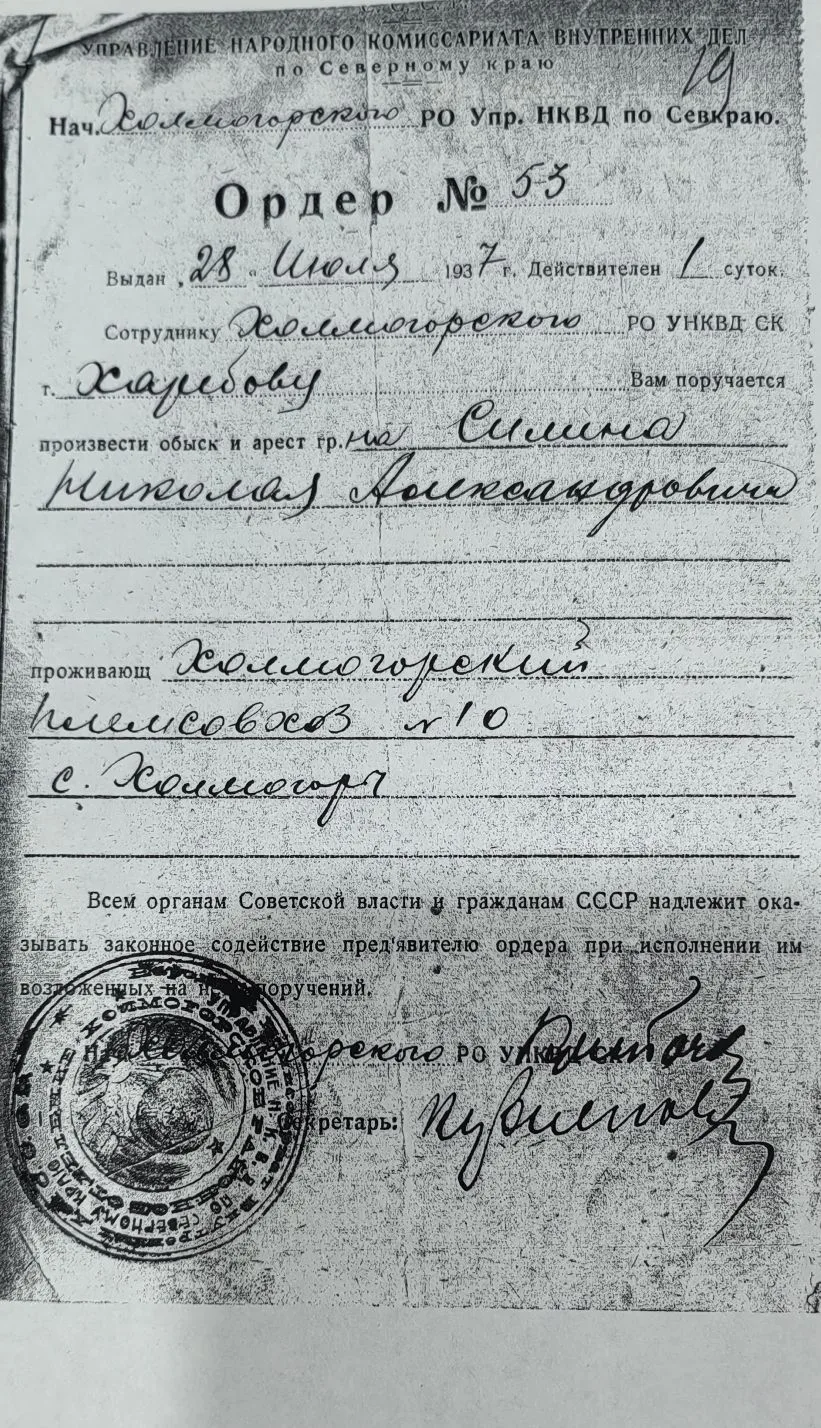 УПРАВЛЕНИЕ НАРОДНОГО КОМИССАРИАТА ВНУТРЕННИХ ДЕЛ
по Северному краю
19
Нач. Холмогорского РО Упр. НКВД по Севкраю.
Ордер № 53
Выдан „28" Июля 1937 г. Действителен 1 суток.
Сотруднику Холмогорского РО УНКВД СК
т. Харибову Вам поручается
произвести обыск и арест гр. на Силина
Николая Александровича
проживающ Холмогорский
племсовхоз №10
с. Холмогоры
Всем органам Советской власти и гражданам СССР надлежит ока-
зывать законное содействие пред'явителю ордера при исполнении им
возложенных на поручений.
Холмогорского РО УНКВД
Секретарь: